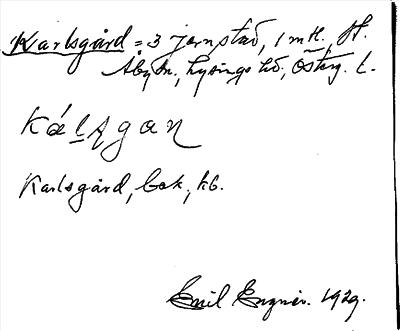 Karlsgård = 3 Jernstad, 1 mtl., H.
Åby sn, Lysings hd, Österg. l.
Kálsgan
Karlsgård, bok, kb.
Emil Engner. 1929.